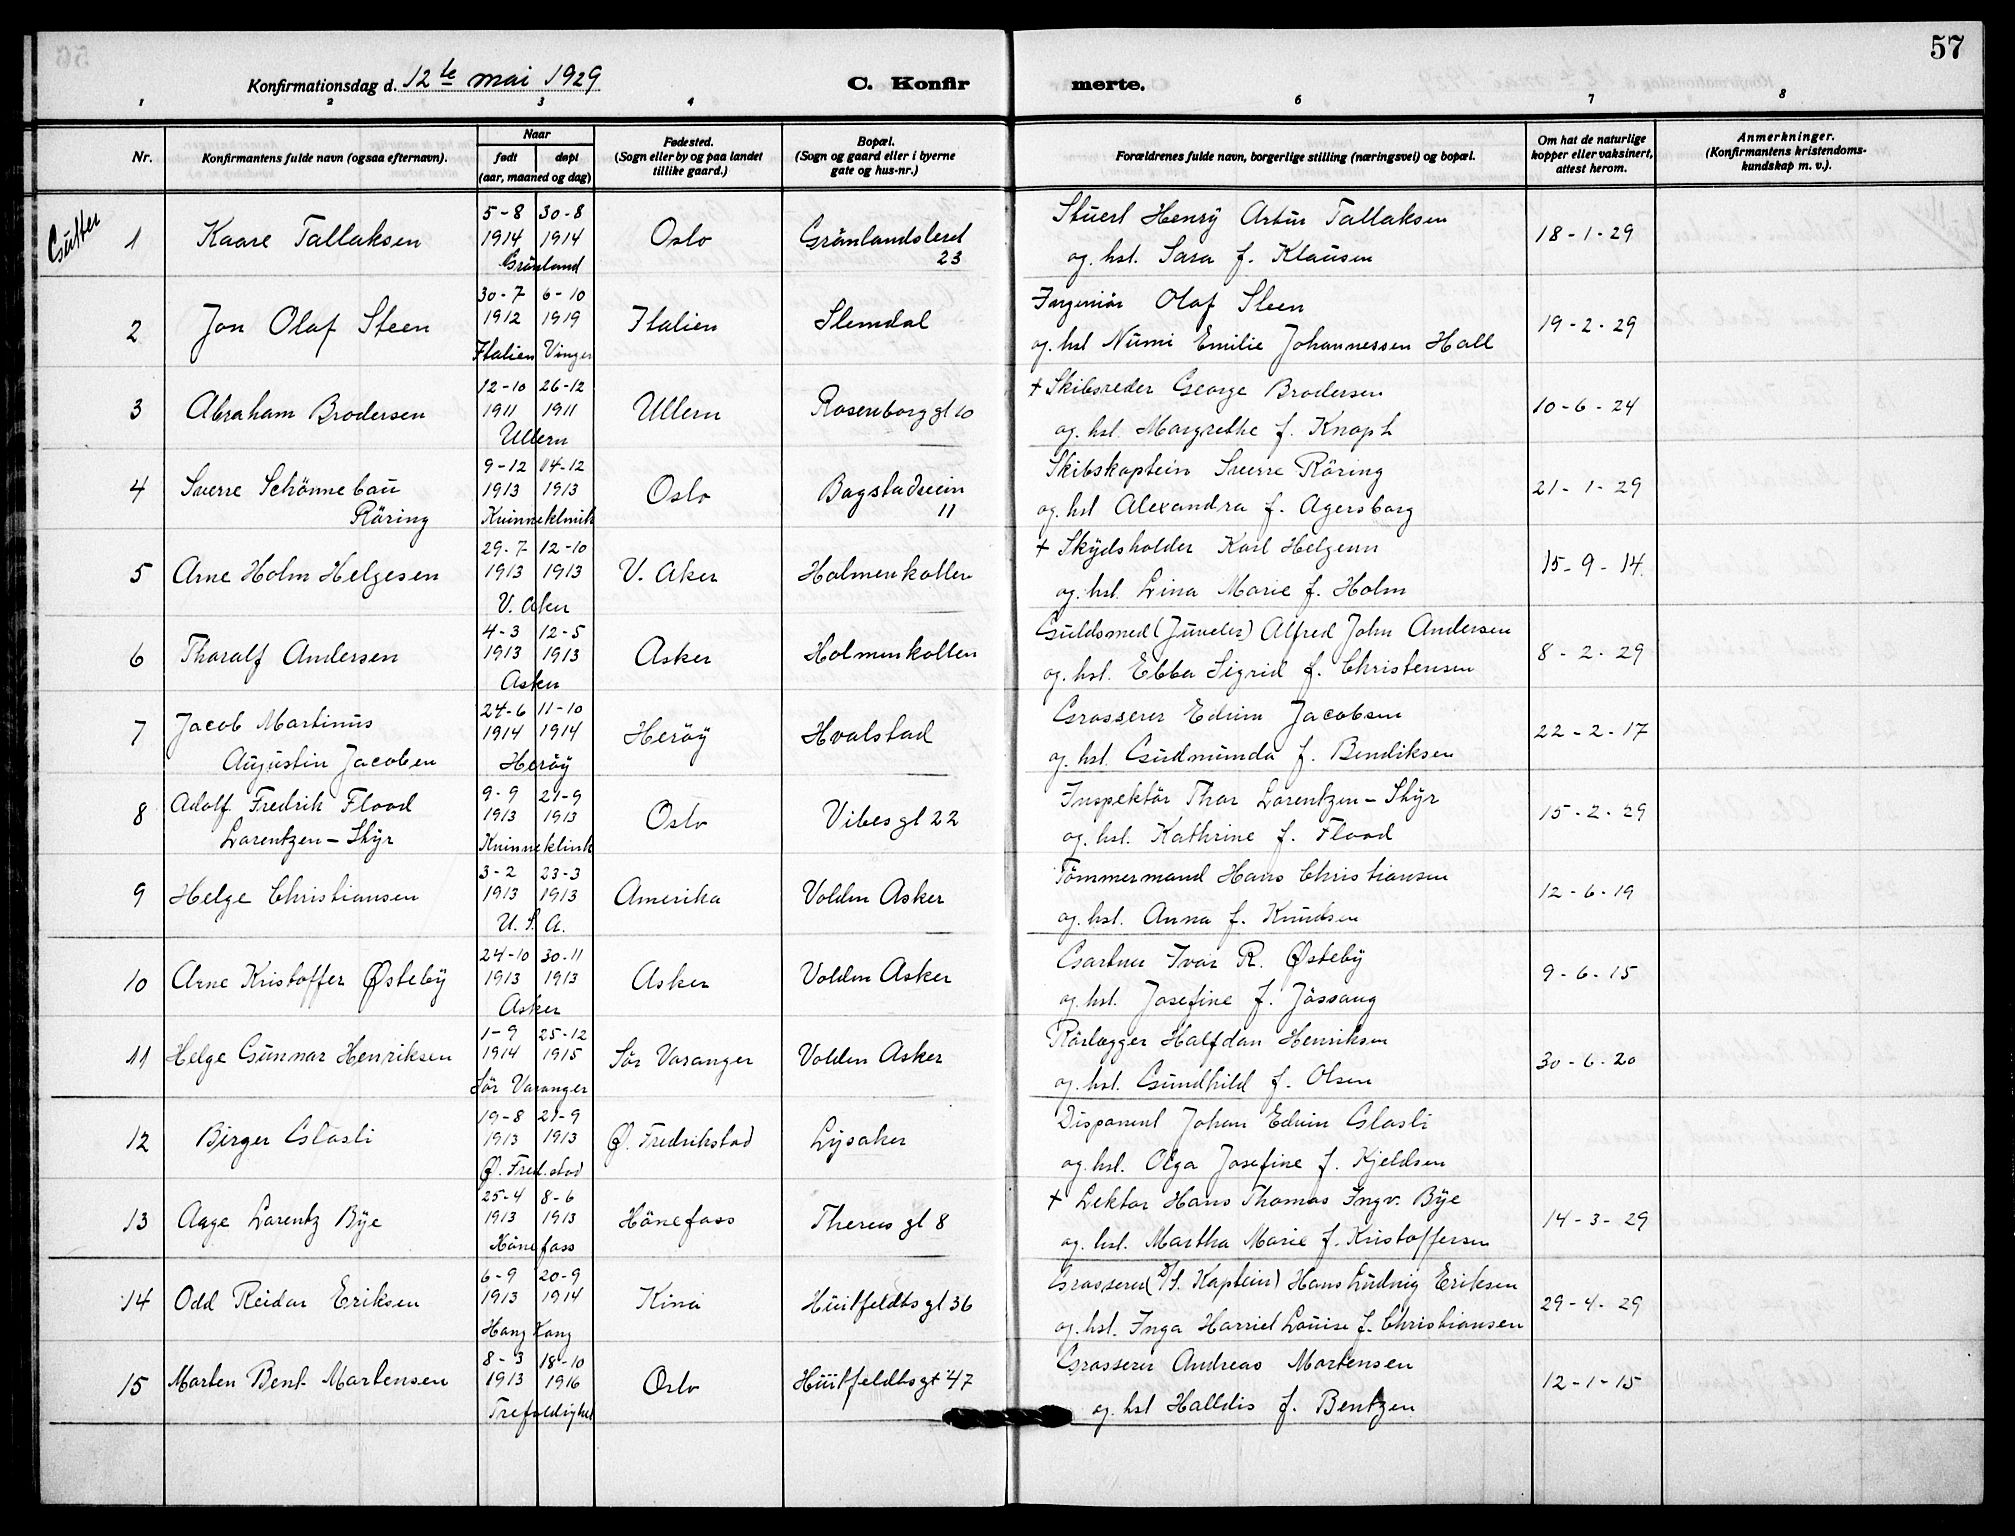 57
Konfirmationsdag d. 12te mai 1929 C. Konfirmerte.
1 2 3 4 6 7 8
Nr. Konfirmantens fulde navn (ogsaa efternavn). Naar født døpt (aar, maaned og dag) Fødested. (Sogn eller by og paa landet tillike gaard.) Bopæl. (Sogn og gaard eller i byerne gate og hus-nr.) Forældrenes fulde navn, borgerlige stilling (næringsvei) og bopæl. Om hat de naturlige kopper eller vaksinert, attest herom. Anmerkninger. (Konfirmantens kristendomskundskap m. v.).
Gutter
1 Kaare Tallaksen 5-8 1914 30-8 1914 Grönland Oslo Grönlandsleret 23 Stuert Henry Artur Tallaksen
og hst. Sara f. Klausen 18-1-29
2 Jon Olaf Steen 30-7 1912 6-10 1919 Italien Vinger Italien Slemdal Ingeniör Olaf Steen
og hst Numi Emilie Johannessen Hall 19-2-29
3 Abraham Brodersen 12-10 1911 26-12 1911 Ullern Ullern Rosenborg gt 10 + Skibsreder George Brodersen
og hst. Margrethe f. Knoph 10-6-24
4 Sverre Schönnebau Röring 9-12 1913 14-12 1913 Kvinneklinik Oslo Bogstadveien 11 Skibskaptein Sverre Röring
og hst Alexandra f. Agersborg 21-1-29
5 Arne Holm Helgesen 29-7 1913 12-10 1913 V. Aker V. Aker Holmenkollen + Skydsholder Karl Helgesen
og hst. Lina Marie f. Holm 15-9-14
6 Tharalf Andersen 4-3 1913 12-5 1913 Asker Asker Holmenkollen Guldsmed (Juveler) Alfred John Andersen
og hst. Ebba Sigrid f. Christensen 8-2-29
7 Jacob Martinus Augustin Jacobsen 24-6 1914 11-10 1914 Heröy Heröy Hvalstad Grosserer Edvin Jacobsen
og hst. Gudmunda f. Bendiksen 22-2-17
8 Adolf Fredrik Flood Lorentzen-Styr 9-9 1913 21-9 1913 Kvinneklinik Oslo Vibes gt 22 Inspektör Thor Lorentzen-Styr
og hst. Kathrine f. Flood 15-2-29
9 Helge Christiansen 3-2 1913 23-3 1913 U. S. A. Amerika Volden Asker Tömmermand Hans Christiansen
og hst. Anna f. Knudsen 12-6-19
10 Arne Kristoffer Østeby 24-10 1913 30-11 1913 Asker Asker Volden Asker Gartner Ivar R. Østeby
og hst. Josefine f. Jössang 9-6-15
11 Helge Gunnar Henriksen 1-9 1914 25-12 1915 Sör Varanger Sör Varanger Volden Asker Rörlægger Halfdan Henriksen
og hst. Gundhild f. Olsen 30-6-20
12 Birger Glasli 19-8 1913 21-9 1913 Ø. Fred.stad Ø. Fredrikstad Lysaker Disponent Johan Edvin Glasli
og hst. Olga Josefine f. Kjeldsen
13 Aage Lorentz Bye 25-4 1913 8-6 1913 Hönefoss Hönefoss Theres gt 8 + Lektor Hans Thomas Ingv. Bye
og hst. Martha Marie f. Kristoffersen 14-3-29
14 Odd Reidar Eriksen 6-9 1913 20-9 1914 Hong Kong Kina Huitfeldts gt 36 Grosserer (D/S. Kaptein) Hans Ludvig Eriksen
og hst. Inga Harriet Louise f. Christiansen 29-4-29
15 Morten Bent Mortensen 8-3 1913 18-10 1916 Trefoldighet Oslo Huitfeldts gt 47 Grosserer Andreas Mortensen
og hst Halldis f. Bentzen 12-1-15